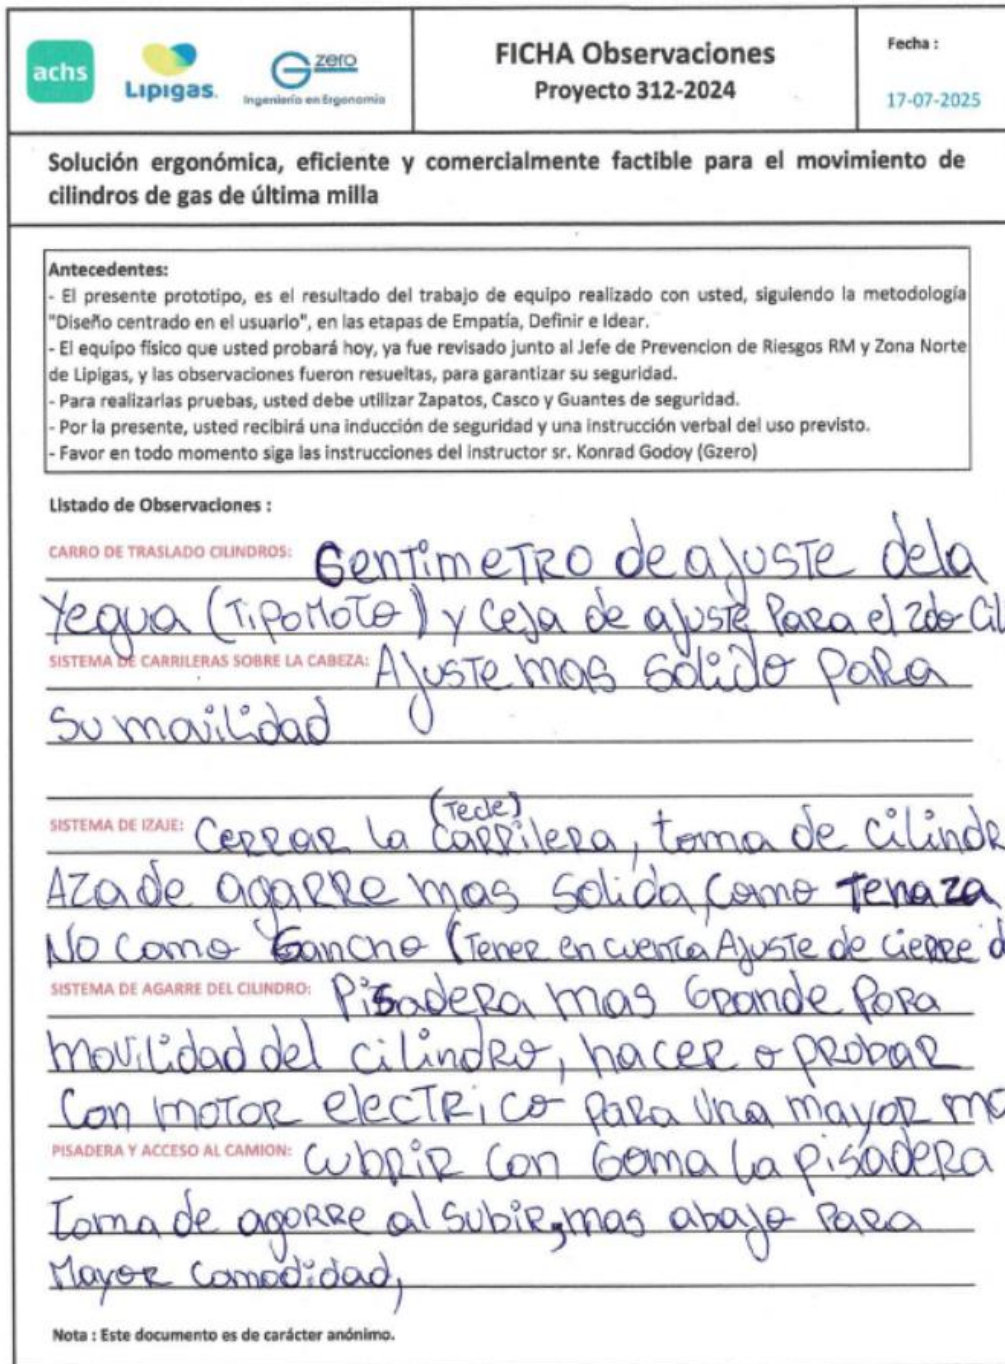 achs
LIPIGAS
Gzero
Ingeniería en Ergonomía
FICHA Observaciones
Proyecto 312-2024
Fecha :
17-07-2025
Solución ergonómica, eficiente y comercialmente factible para el movimiento de
cilindros de gas de última milla
Antecedentes:
- El presente prototipo, es el resultado del trabajo de equipo realizado con usted, siguiendo la metodología
"Diseño centrado en el usuario", en las etapas de Empatía, Definir e Idear.
- El equipo físico que usted probará hoy, ya fue revisado junto al Jefe de Prevencion de Riesgos RM y Zona Norte
de Lipigas, y las observaciones fueron resueltas, para garantizar su seguridad.
- Para realizarlas pruebas, usted debe utilizar Zapatos, Casco y Guantes de seguridad.
- Por la presente, usted recibirá una inducción de seguridad y una instrucción verbal del uso previsto.
- Favor en todo momento siga las instrucciones del instructor sr. Konrad Godoy (Gzero)
Listado de Observaciones :
CARRO DE TRASLADO CILINDROS: Centimetro de ajuste dela
Yegua (Tipo Moto) y Ceja de ajuste Para el 2do Cil
SISTEMA DE CARRILERAS SOBRE LA CABEZA: Ajuste mas Solido para
Su movilidad
(Tecle)
SISTEMA DE IZAJE: Cerrar la Carrilera, toma de cilindr
Aza de agarre mas Solida, Como Tenaza
No Como Gancho (Tener en cuenta Ajuste de cierre d
SISTEMA DE AGARRE DEL CILINDRO: Pisadera mas Grande Para
movilidad del cilindro, hacer o probar
Con motor electrico para una mayor mo
PISADERA Y ACCESO AL CAMION: Cubrir Con Goma la pisadera
Toma de agarre al Subir, mas abajo Para
Mayor Comodidad,
Nota : Este documento es de carácter anónimo.